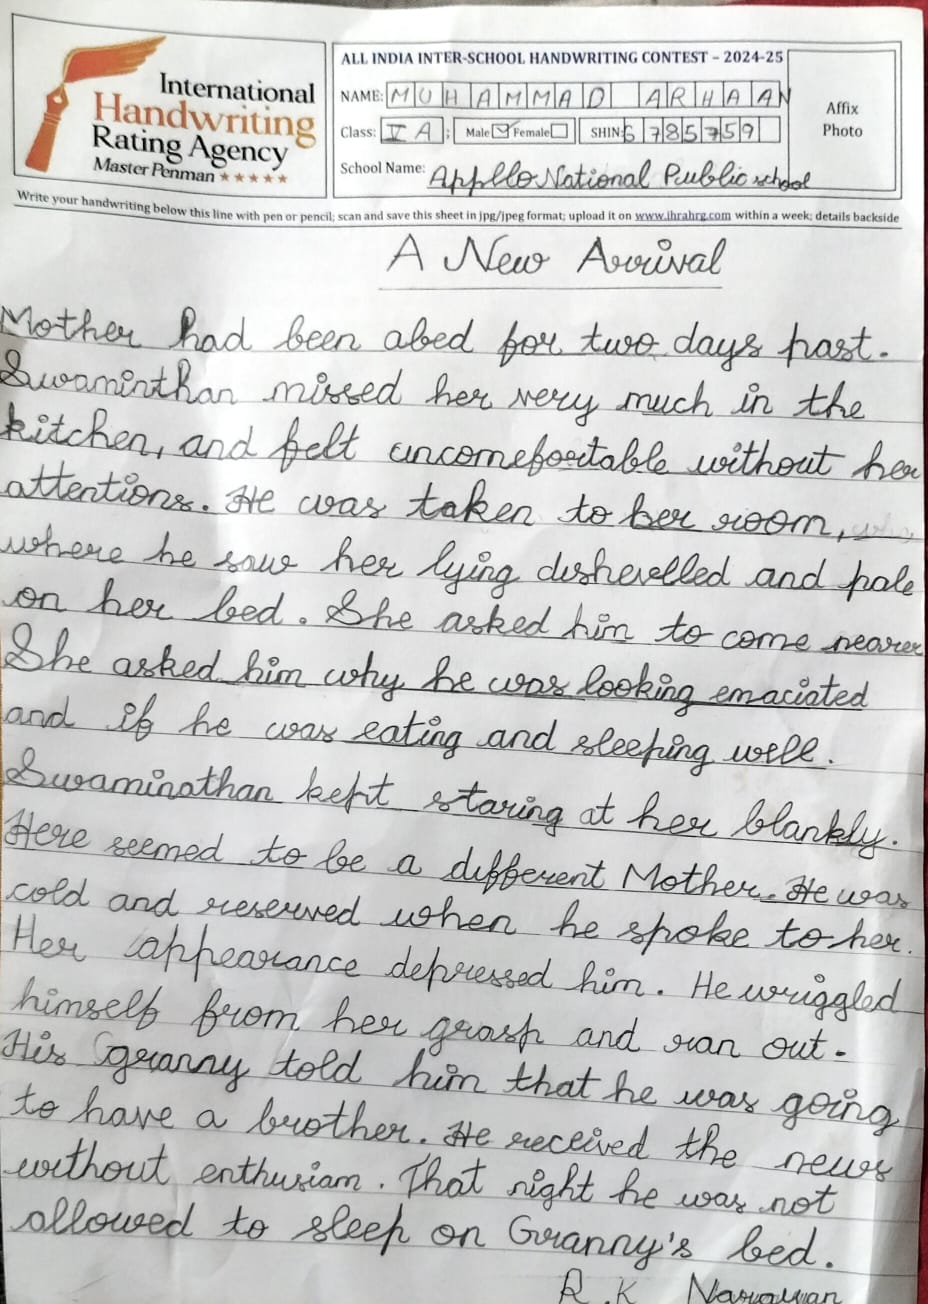 International
Handwriting
Rating Agency
Master Penman ★★★★★
ALL INDIA INTER-SCHOOL HANDWRITING CONTEST – 2024-25
NAME: MUHAMMAD ARHAAN
Class: V A ; Male ☑ Female ☐ SHIN: 6785759
School Name: Appllo National Puublic school
Affix
Photo
Write your handwriting below this line with pen or pencil; scan and save this sheet in jpg/jpeg format; upload it on www.ihrahrg.com within a week; details backside
A New Arrival
Mother had been abed for two days past.
Swaminthan missed her very much in the
kitchen, and felt uncomefortable without her
attentions. He was taken to her room,
where he saw her lying dishevelled and pale
on her bed. She asked him to come nearer
She asked him why he was looking emaciated
and if he was eating and sleeping well.
Swaminathan kept staring at her blankly.
Here seemed to be a different Mother. He was
cold and reserved when he spoke to her.
Her appearance depressed him. He wriggled
himself from her grasp and ran out.
His Granny told him that he was going
to have a brother. He received the news
without enthusiam. That night he was not
allowed to sleep on Granny's bed.
R.K Narayan